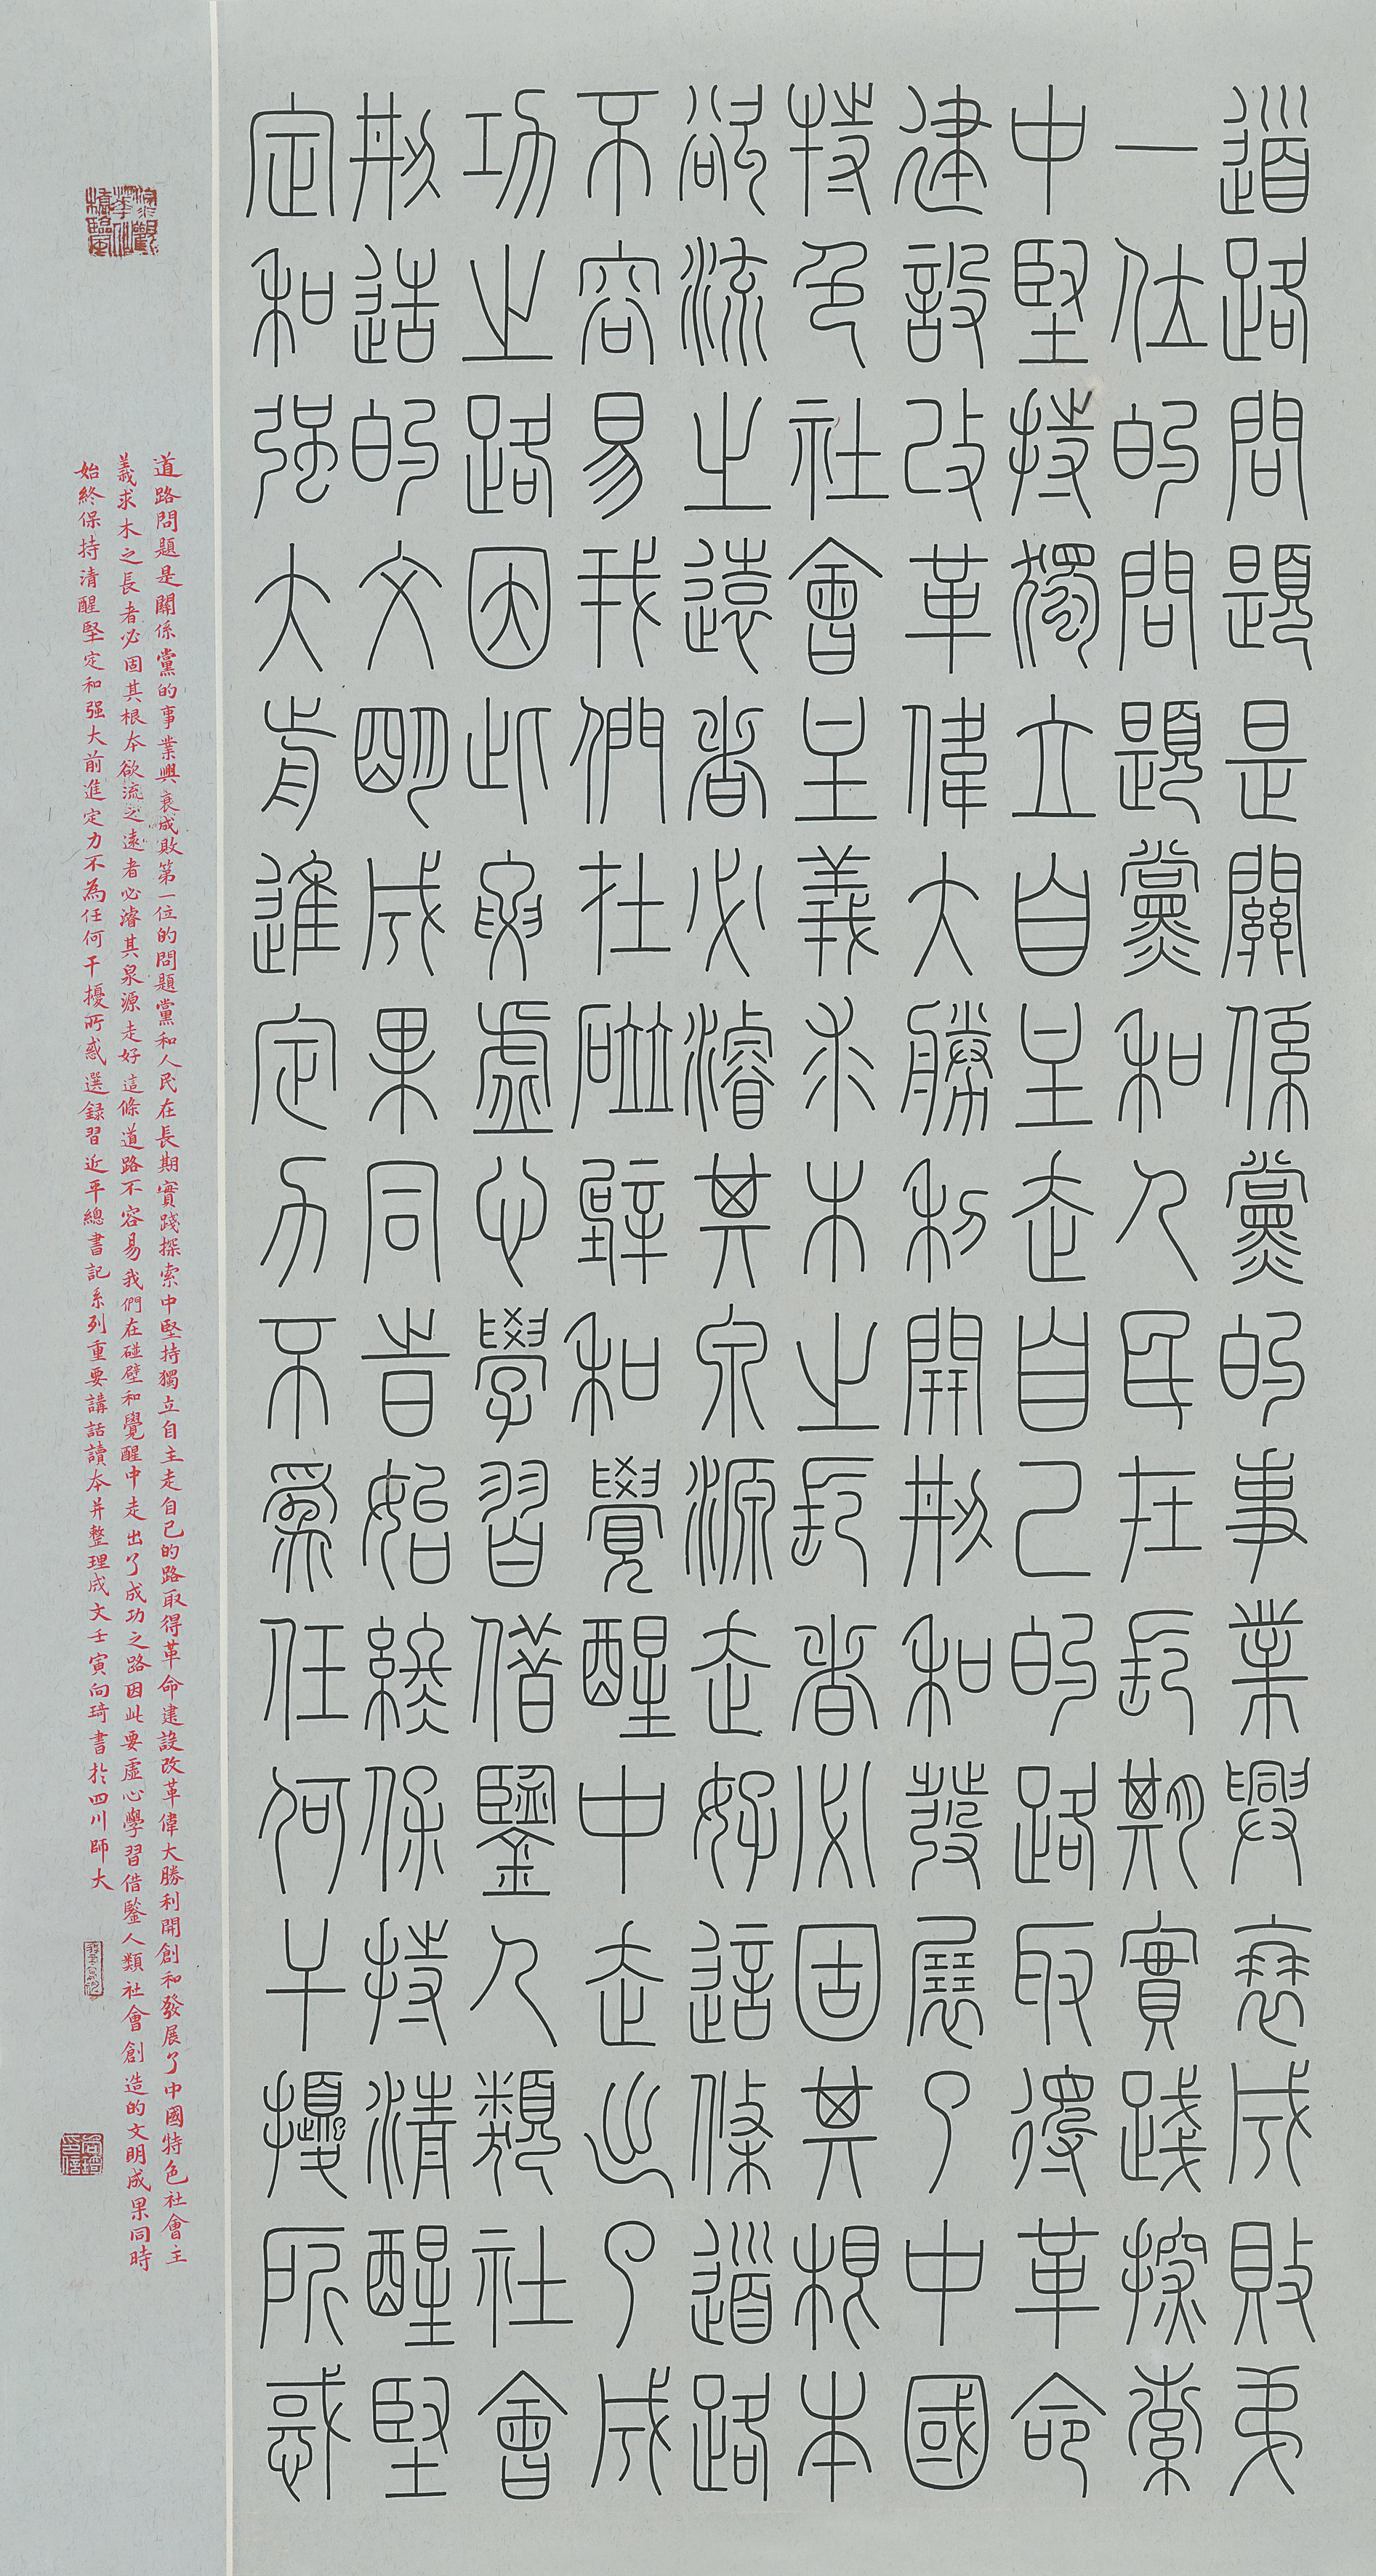 道路問題是關係黨的事業興衰成敗弟
一位的問題黨和人民在長期實踐探索
中堅持獨立自主走自己的路取得革命
建設改革偉大勝利開創和發展了中國
特色社會主義求木之長者必固其根本
欲流之遠者必濬其泉源走好這條道路
不容易我們在碰壁和覺醒中走出了成
功之路因此要虛心學習借鑒人類社會
創造的文明成果同時始終保持清醒堅
定和强大前進定力不爲任何干擾所惑
道路問題是關係黨的事業興衰成敗第一位的問題黨和人民在長期實踐探索中堅持獨立自主走自己的路取得革命建設改革偉大勝利開創和發展了中國特色社會主
義求木之長者必固其根本欲流之遠者必濬其泉源走好這條道路不容易我們在碰壁和覺醒中走出了成功之路因此要虛心學習借鑒人類社會創造的文明成果同時
始終保持清醒堅定和强大前進定力不為任何干擾所惑選録習近平總書記系列重要講話讀本并整理成文壬寅向琦書於四川師大